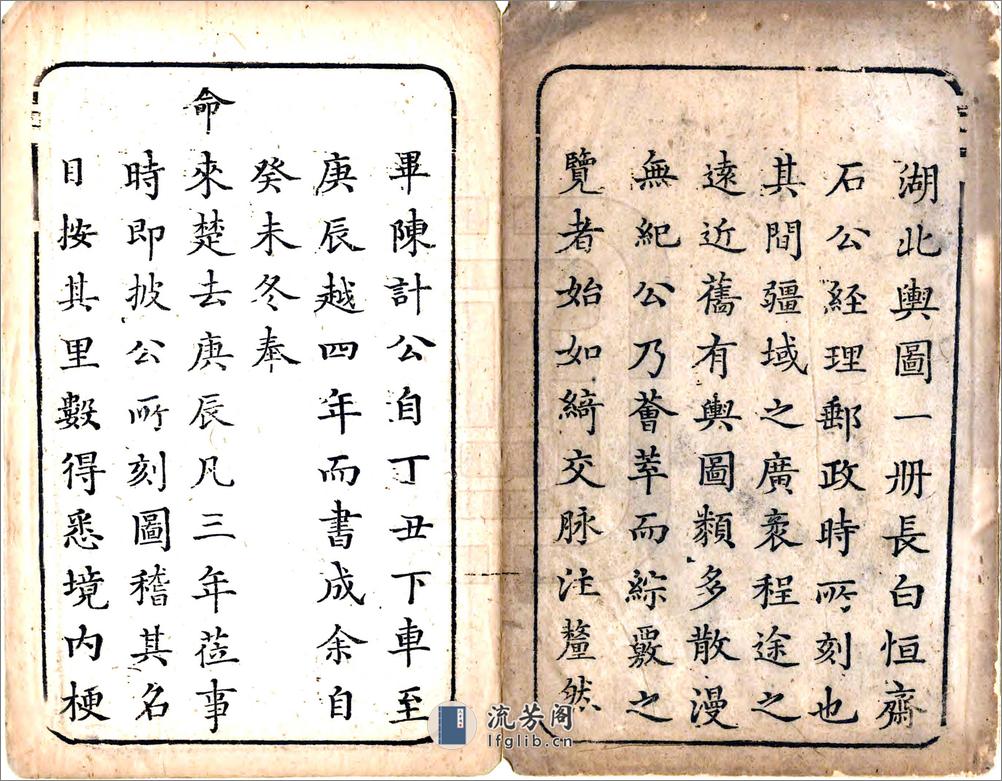 湖北輿圖一册長白恒齋
石公経理郵政時所刻也
其間疆域之廣袤程途之
遠近舊有輿圖類多散漫
無紀公乃薈萃而綜覈之
覽者始如綺交脉注釐然
畢陳計公自丁丑下車至
庚辰越四年而書成余自
癸未冬奉
命
來楚去庚辰凡三年莅事
時即披公所刻圖稽其名
目按其里數得悉境内梗
流芳阁
lfglib.cn